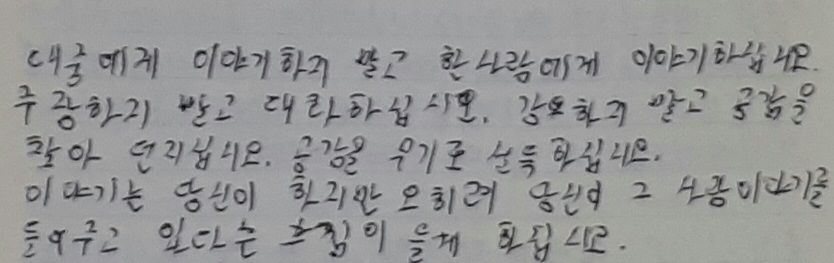 대중에게 이야기하지 말고 한사람에게 이야기하십시오.
주장하지 말고 대화하십시오. 강요하지 말고 공감을
찾아 던지십시오. 공감을 무기로 설득하십시오.
이야기는 당신이 하지만 오히려 당신이 그 사람이야기를
들어주고 있다는 느낌이 들게 하십시오.